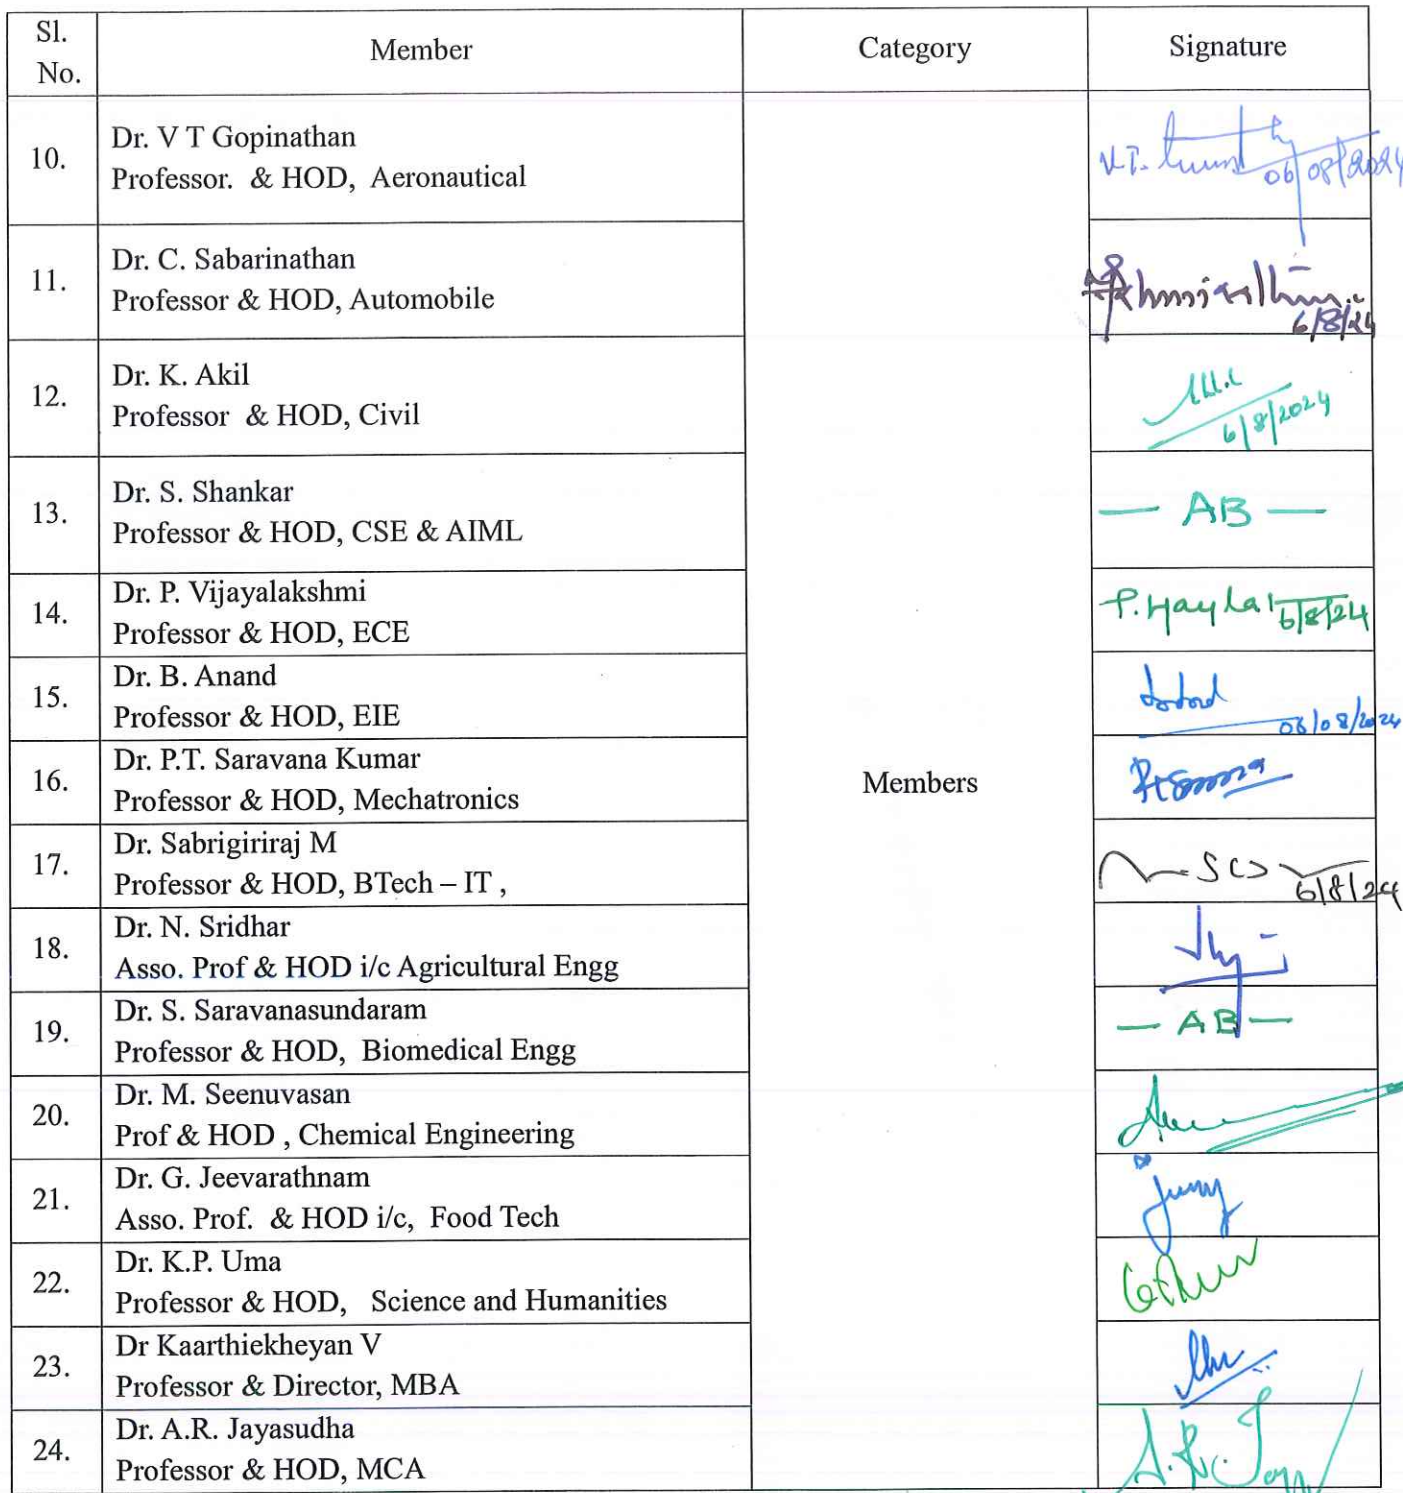 Sl.
No.
Member
Category
Signature
10.
Dr. V T Gopinathan
Professor. & HOD, Aeronautical
06/08/2024
11.
Dr. C. Sabarinathan
Professor & HOD, Automobile
6/8/24
12.
Dr. K. Akil
Professor & HOD, Civil
6/8/2024
13.
Dr. S. Shankar
Professor & HOD, CSE & AIML
— AB —
14.
Dr. P. Vijayalakshmi
Professor & HOD, ECE
6/8/24
15.
Dr. B. Anand
Professor & HOD, EIE
06/08/2024
16.
Dr. P.T. Saravana Kumar
Professor & HOD, Mechatronics
Members
17.
Dr. Sabrigiriraj M
Professor & HOD, BTech – IT ,
6/8/24
18.
Dr. N. Sridhar
Asso. Prof & HOD i/c Agricultural Engg
19.
Dr. S. Saravanasundaram
Professor & HOD, Biomedical Engg
— AB —
20.
Dr. M. Seenuvasan
Prof & HOD , Chemical Engineering
21.
Dr. G. Jeevarathnam
Asso. Prof. & HOD i/c, Food Tech
22.
Dr. K.P. Uma
Professor & HOD, Science and Humanities
23.
Dr Kaarthiekheyan V
Professor & Director, MBA
24.
Dr. A.R. Jayasudha
Professor & HOD, MCA